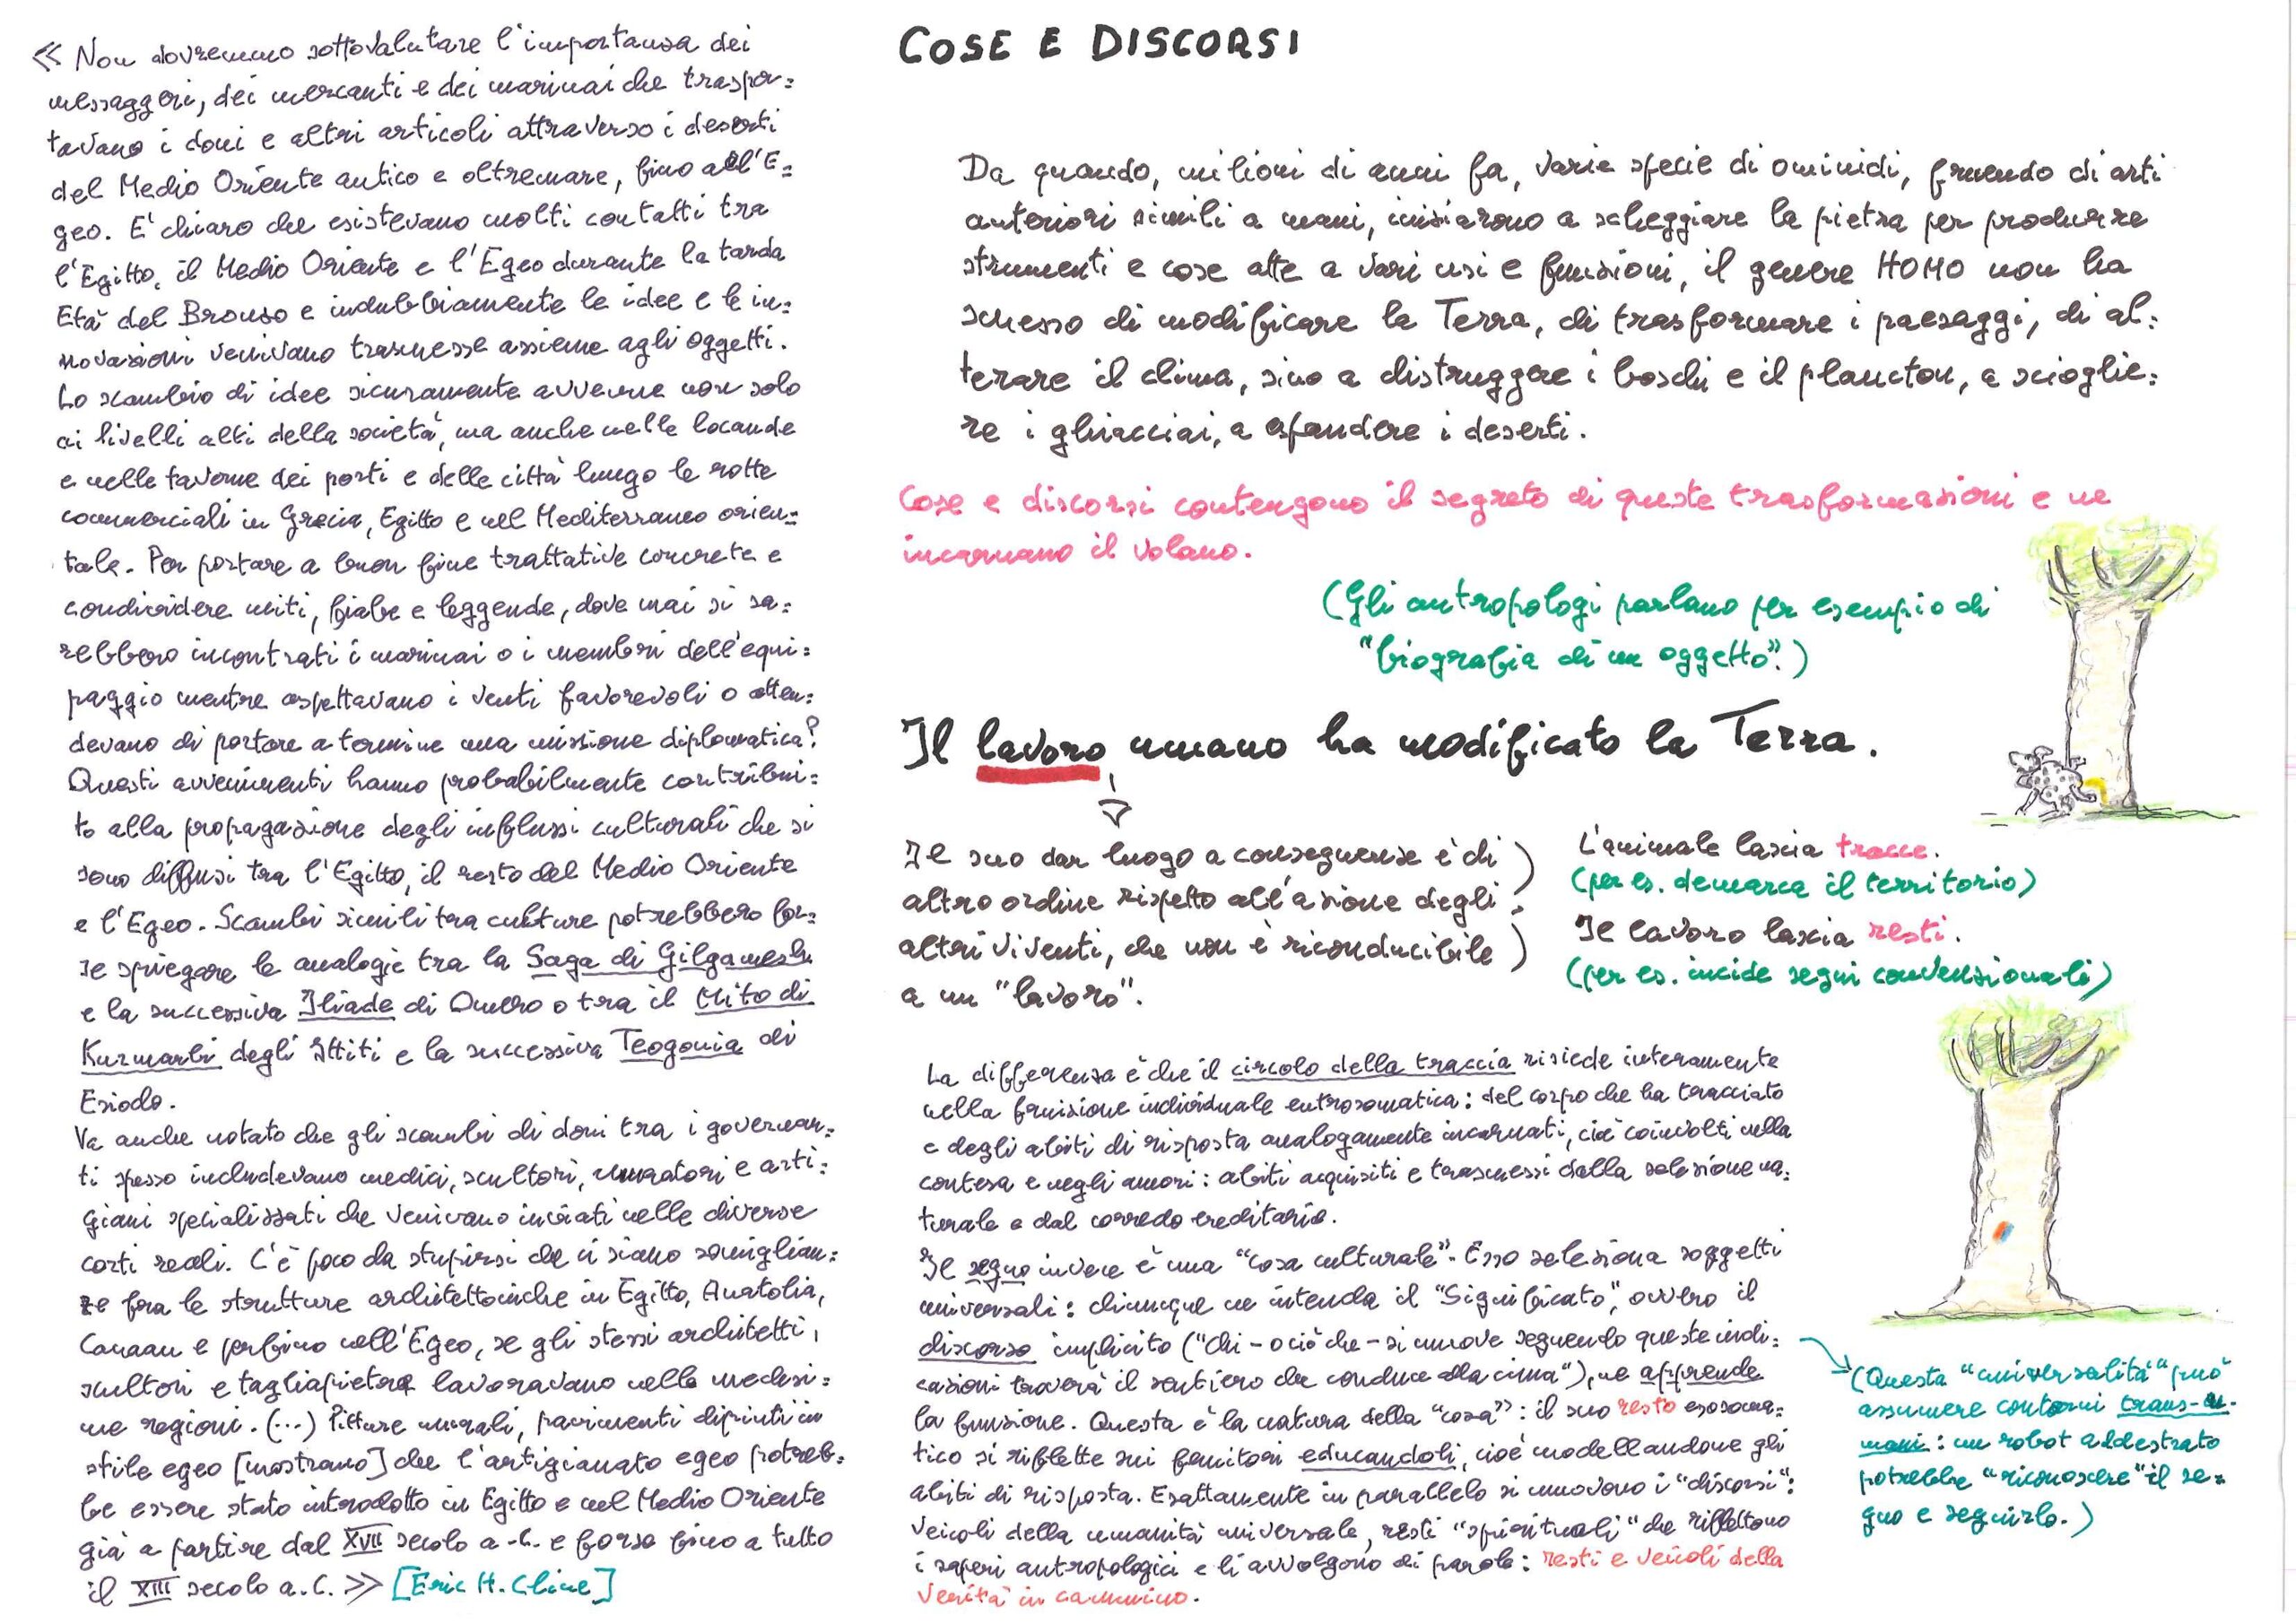 ≪ Non dovremmo sottovalutare l'importanza dei
messaggeri, dei mercanti e dei marinai che traspor=
tavano i doni e altri articoli attraverso i deserti
del Medio Oriente antico e oltremare, fino all'E=
geo. E' chiaro che esistevano molti contatti tra
l'Egitto, il Medio Oriente e l'Egeo durante la tarda
Età del Bronzo e indubbiamente le idee e le in=
novazioni venivano trasmesse assieme agli oggetti.
Lo scambio di idee sicuramente avvenne non solo
ai livelli alti della società, ma anche nelle locande
e nelle taverne dei porti e delle città lungo le rotte
commerciali in Grecia, Egitto e nel Mediterraneo orien=
tale. Per portare a buon fine trattative concrete e
condividere miti, fiabe e leggende, dove mai si sa=
rebbero incontrati i marinai o i membri dell'equi=
paggio mentre aspettavano i venti favorevoli o atten=
devano di portare a termine una missione diplomatica?
Questi avvenimenti hanno probabilmente contribui=
to alla propagazione degli influssi culturali che si
sono diffusi tra l'Egitto, il resto del Medio Oriente
e l'Egeo. Scambi simili tra culture potrebbero for=
se spiegare le analogie tra la Saga di Gilgamesh
e la successiva Iliade di Omero o tra il Mito di
Kurmarbi degli Ittiti e la successiva Teogonia di
Esiodo.
Va anche notato che gli scambi di doni tra i governan=
ti spesso includevano medici, scultori, muratori e arti=
giani specializzati che venivano inviati nelle diverse
corti reali. C'è poco da stupirsi che ci siano somiglian=
ze fra le strutture architettoiniche in Egitto, Anatolia,
Canaan e perfino nell'Egeo, se gli stessi architetti,
scultori e tagliapietre lavoravano nelle medesi=
me regioni. (...) Pitture murali, pavimenti dipinti in
stile egeo [mostrano] che l'artigianato egeo potreb=
be essere stato introdotto in Egitto e nel Medio Oriente
già a partire dal XVII secolo a.C. e forse fino a tutto
il XIII secolo a.C. ≫ [Eric H. Cline]
COSE E DISCORSI
Da quando, milioni di anni fa, varie specie di ominidi, fruendo di arti
anteriori simili a mani, iniziarono a scheggiare la pietra per produrre
strumenti e cose atte a vari usi e funzioni, il genere HOMO non ha
smesso di modificare la Terra, di trasformare i paesaggi, di al=
terare il clima, sino a distruggere i boschi e il plancton, a scioglie=
re i ghiacciai, a espandere i deserti.
Cose e discorsi contengono il segreto di queste trasformazioni e ne
incarnano il volano.
(Gli antropologi parlano per esempio di
"biografia di un oggetto".)
Il lavoro umano ha modificato la Terra.
Il suo dar luogo a conseguenze è di
altro ordine rispetto all'azione degli
altri viventi, che non è riconducibile
a un "lavoro".
L'animale lascia tracce.
(per es. demarca il territorio)
Il lavoro lascia resti.
(per es. incide segni convenzionali)
La differenza è che il circolo della traccia risiede interamente
nella fruizione individuale entrosomatica: del corpo che ha tracciato
e degli abiti di risposta analogamente incarnati, cioè coinvolti nella
contesa e negli amori: abiti acquisiti e trasmessi dalla selezione na=
turale e dal corredo ereditario.
Il segno invece è una "cosa culturale". Esso seleziona soggetti
universali: chiunque ne intenda il "Significato", ovvero il
discorso implicito ("chi-o ciò che-si muove seguendo queste indi=
cazioni troverà il sentiero che conduce alla cima"), ne apprende
la funzione. Questa è la natura della "cosa": il suo resto esosoma=
tico si riflette sui fruitori educandoli, cioè modellandone gli
abiti di risposta. Esattamente in parallelo si muovono i "discorsi":
veicoli della umanità universale, resti "spirituali" che riflettono
i saperi antropologici e li avvolgono di parole: resti e veicoli della
verità in cammino.
(Questa "universalità" può
assumere contorni trans-u=
mani: un robot addestrato
potrebbe "riconoscere" il se=
gno e seguirlo.)